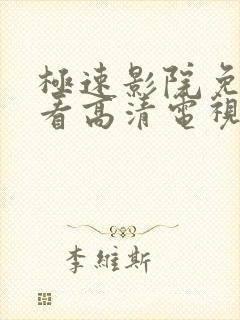 極速影院免
看高清電視
李維斯